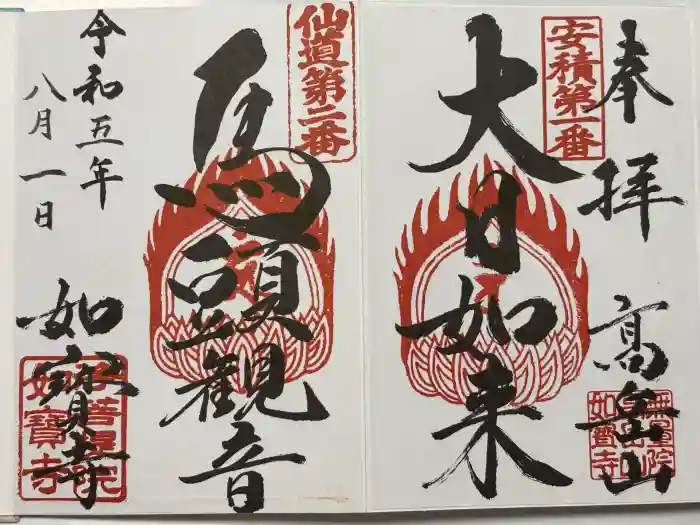 奉拝
安積第一番
大日如来
高岳山
如寶寺
仙道第二番
馬頭観音
令和五年
八月一日
如寶寺
如寶寺